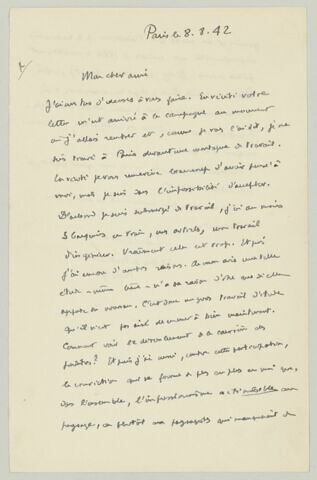 Paris le 8. 8. 42
Mon cher ami
J'ai mes pas d'excuses à vous faire. En vérité votre
lettre m'est arrivée à la campagne au moment
où j'allais rentrer et, comme je vous l'ai dit, je me
suis trouvé à Paris devant une montagne de travail.
En vérité je vous remercie beaucoup d'avoir pensé à
moi, mais je suis dans l'impossibilité d'accepter.
D'abord je suis submergé de travail, j'ai au moins
5 bouquins en train, des articles, mon travail
d'ingénieur. Vraiment cela est trop. Et puis
j'ai encore d'autres raisons. A mon avis une telle
étude - même brève - n'a sa raison d'être que si elle
apporte du nouveau. C'est donc un gros travail d'étude
qu'il n'est pas aisé de mener à bien maintenant.
Comment voir le déroulement de la carrière des
peintres? Et puis j'ai aussi, contre cette participation,
la conviction qui se forme de plus en plus en moi que,
dans l'ensemble, l'impressionnisme a été nuisible au
paysage, ou plutôt aux paysagistes qui manquaient de